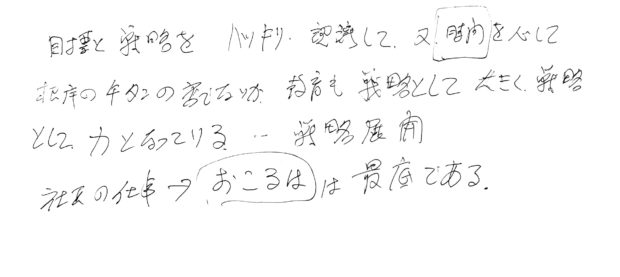 目標と戦略を ハッキリ 認識して、又 時間を
の 教育も 戦略として 大きく 戦略
として 力となっている … 戦略展開
社長の仕事 → おこるは は 最底である。